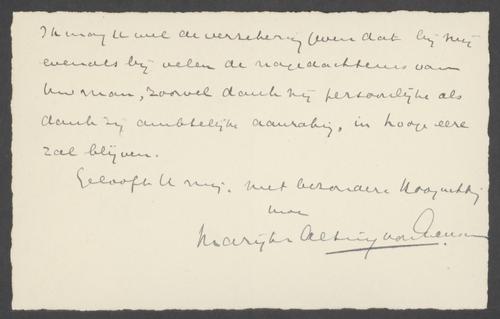 Ik mag U wel de verzekering geven dat bij mij
evenals bij velen de nagedachtenis van
Uw man, zoowel dank zij persoonlijke als
dank zij ambtelijke aanraking, in hooge eere
zal blijven.
Geloof U mij, met bezondere Hoogachting